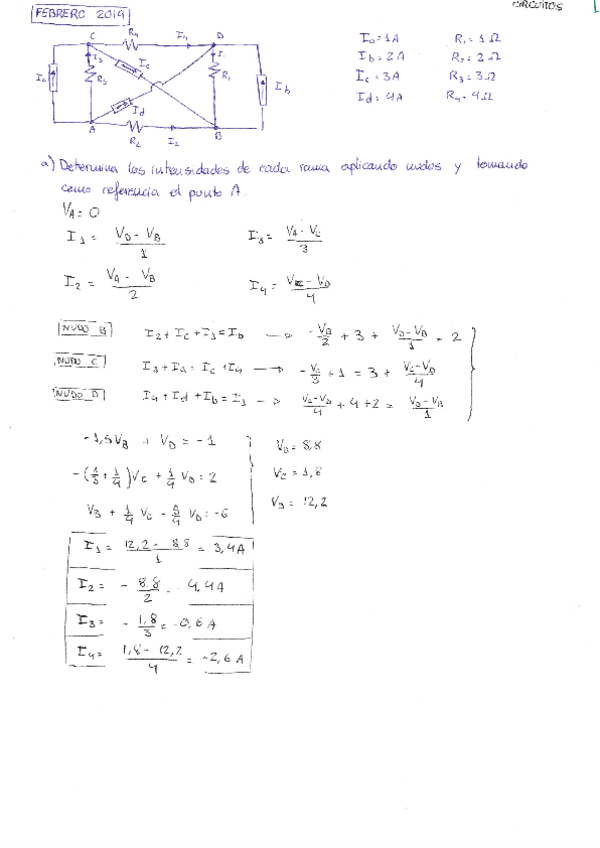 CIRCUITOS
FEBRERO 2019
C R4 I4 D
Ia I3 R3 Ic Id I1 R1 Ib
A R2 I2 B
Ia = 1A R1 = 1 Ω
Ib = 2A R2 = 2 Ω
Ic = 3A R3 = 3 Ω
Id = 4A R4 = 4 Ω
a) Determina las intensidades de cada rama aplicando nudos y tomando
como referencia el punto A.
VA = 0
I1 = (VD - VB)/1 I3 = (VA - VC)/3
I2 = (VA - VB)/2 I4 = (VC - VD)/4
NUDO B I2 + Ic + I1 = Ib → -VB/2 + 3 + (VD - VB)/1 = 2
NUDO C I3 + Ia = Ic + I4 → -VC/3 + 1 = 3 + (VC - VD)/4
NUDO D I4 + Id + Ib = I1 → (VC - VD)/4 + 4 + 2 = (VD - VB)/1
-1,5VB + VD = -1
-(1/3 + 1/4)VC + 1/4 VD = 2
VB + 1/4 VC - 5/4 VD = -6
VB = 8,8
VC = 1,8
VD = 12,2
I1 = (12,2 - 8,8)/1 = 3,4A
I2 = -8,8/2 = -4,4A
I3 = -1,8/3 = -0,6 A
I4 = (1,8 - 12,2)/4 = -2,6 A